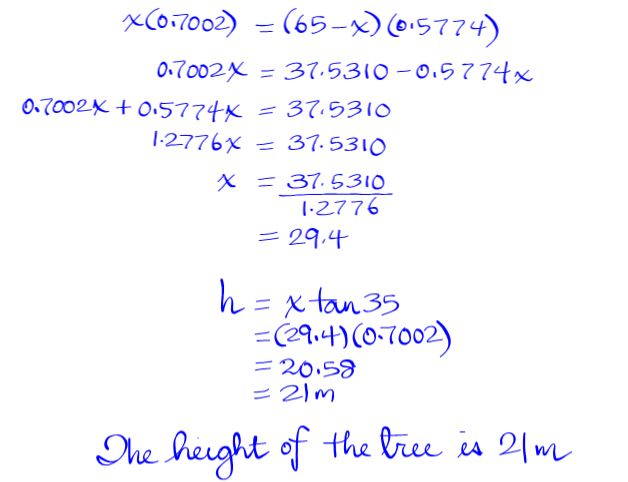 x(0.7002) = (65-x)(0.5774)
0.7002x = 37.5310 - 0.5774x
0.7002x + 0.5774x = 37.5310
1.2776x = 37.5310
x = 37.5310
1.2776
= 29.4
h = x tan 35
= (29.4)(0.7002)
= 20.58
= 21m
The height of the tree is 21m